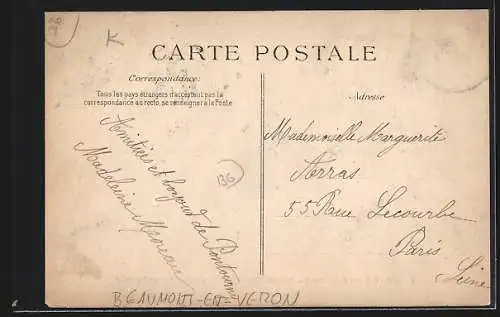 20
K
CARTE POSTALE
Correspondance:
Tous les pays étrangers n'acceptent pas la
correspondance au recto, se renseigner à la Poste
Adresse
Amitiés et bonjour de
Madeleine Moreau
36
Mademoiselle Marguerite
Arras
55 Rue Lecourbe
Paris
Seine
BEAUMONT-EN-VERON